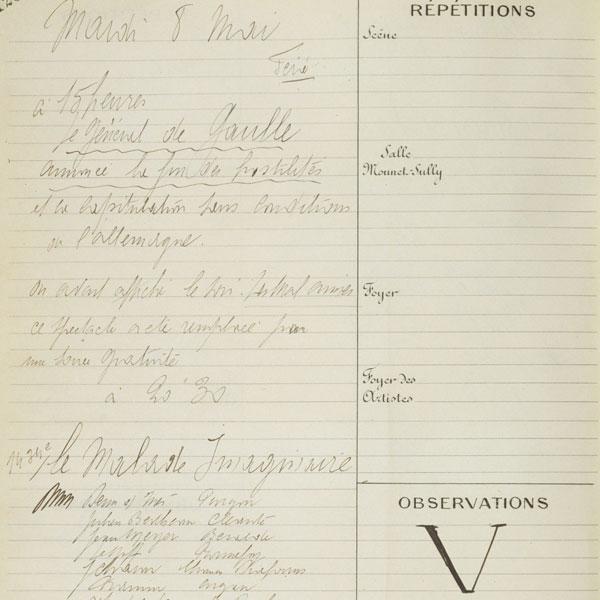 Mardi 8 Mai
Férié
à 15 heures
le Général de Gaulle
annonce la fin des hostilités
et la capitulation sans conditions
de l'allemagne.
on avait affiché le soir.
ce spectacle a été remplacé par
une soirée gratuite
à 20h30
le Malade Imaginaire
MM Denis d'Inès Purgon
Julien Bertheau Cléante
Jean Meyer Béralde
Bonnefoy
Thomas Diafoirus
Argan
RÉPÉTITIONS
Scène
Salle
Mounet-Sully
Foyer
Foyer des
Artistes
OBSERVATIONS
V